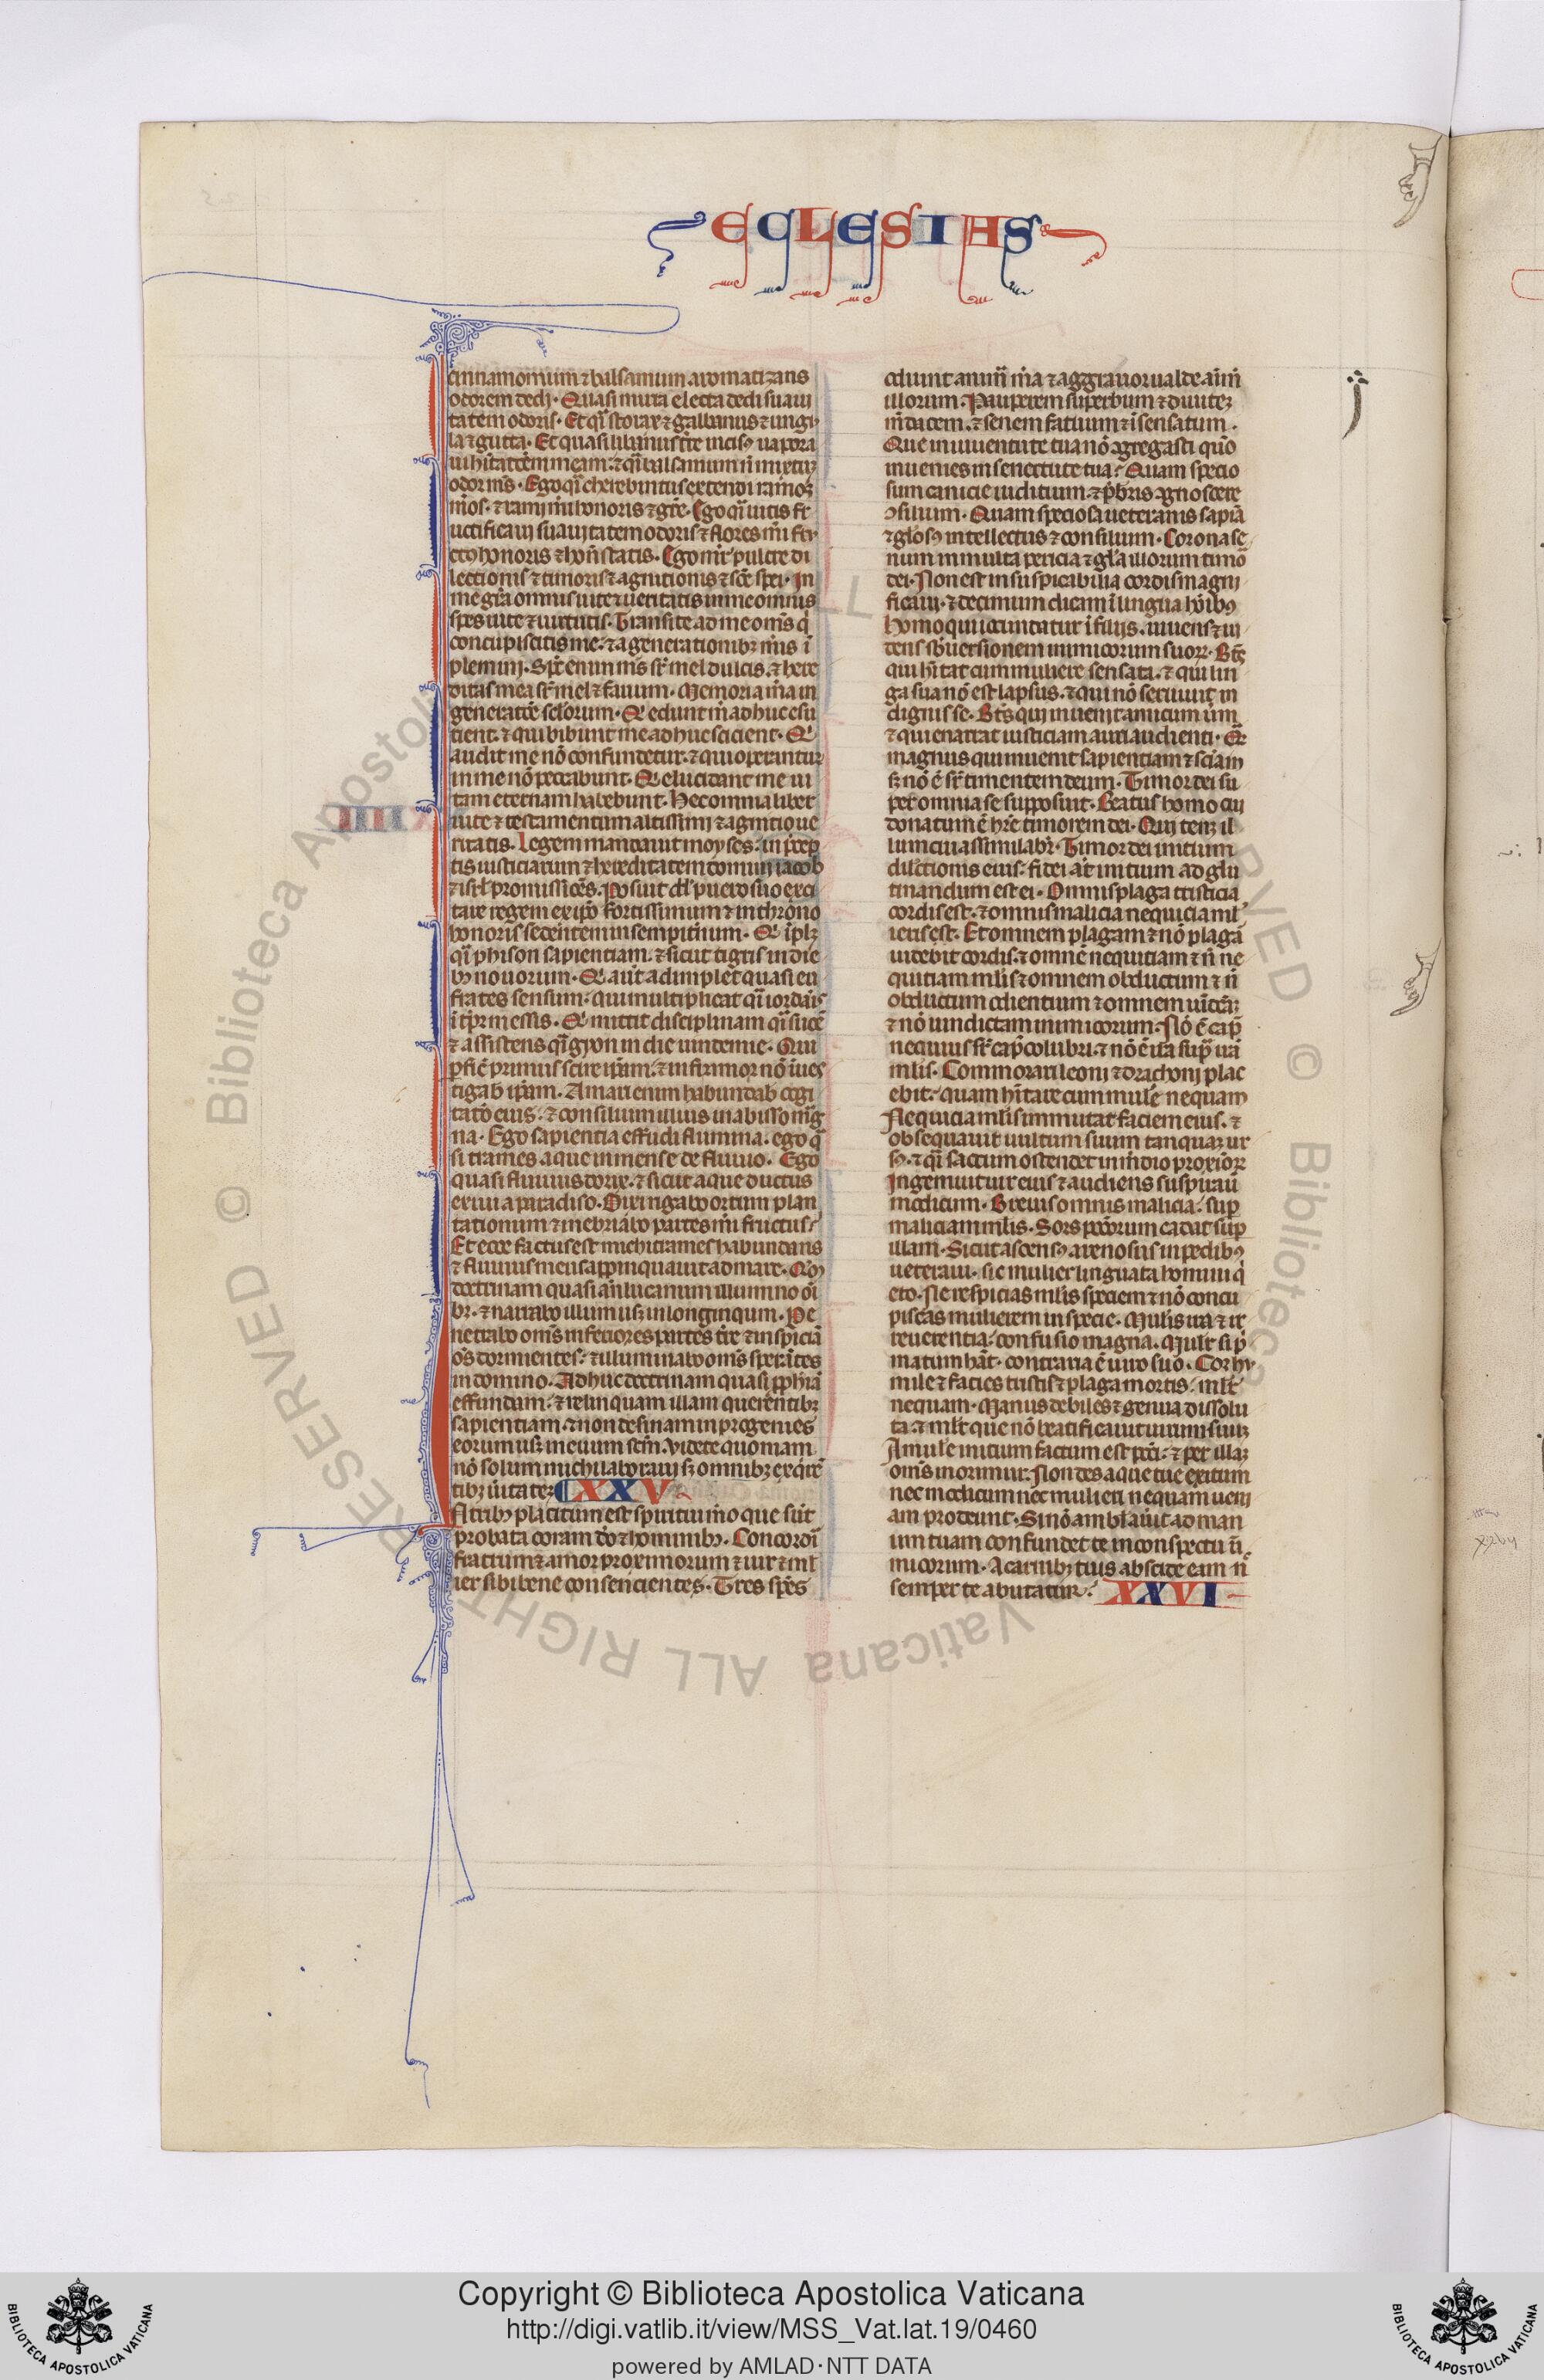 ECCLESIAS
cinnamomum ⁊ balsamum aromatizans
odorem dedi. Quasi mirra electa dedi suaui
tatem odoris. Et qi storax ⁊ galbanus ⁊ ungu
la ⁊ gutta. Et quasi libanus nō incisꝰ uapora
ui hitatōem meam. ⁊ qi balsamum n̄ mixtuꝫ
odor ms. Ego qi therebintus extendi ramoꝫ
mōs. ⁊ rami mi honoris ⁊ gre. Ego qi uitis fr
uctificaui suauitatem odoris ⁊ flores mi fru
ctꝰ honoris ⁊ honestatis. Ego mr̄ pulcre di
lectionis ⁊ timoris ⁊ agnitionis ⁊ sce spei. In
me gra omnis uite ⁊ ueritatis in me omnis
spes uite ⁊ uirtutis. Transite ad me oms q̄
concupiscitis me. ⁊ a generationibꝫ meis i
plemini. Sps̄ enim ms̄ sr̄ mel dulcis. ⁊ here
ditas mea sr̄ mel ⁊ fauum. Memoria mea in
generatōe sclorum. Qi edunt m̄ adhuc esu
rient. ⁊ qui bibunt me adhuc scicient. Qi
audit me nō confundetur. ⁊ qui operantur
in me nō peccabunt. Qi elucidant me ui
tam eternam habebunt. Hec omnia liber
uite ⁊ testamentum altissimi ⁊ agnitio ue
ritatis. Legem mandauit moyses. in p̄cep
tis iusticiarum ⁊ hereditatem domui iacob
⁊ isrl' promissiōes. Posuit dd' puero suo exci
tare regem ex ipō fortissimum ⁊ in throno
honoris sedentem in sempitnum. Qi iplꝫ
qi phison sapientiam. ⁊ sicut tigris in die
bꝫ nouorum. Qi adimplet quasi eu
frates sensum. qui multiplicat qi iordāis
i tpr messis. Qi mittit disciplinam qi lucē
⁊ assistens qi gyon in die uindemie. Qui
pficē primus scire ipam. ⁊ infirmior nō iues
tigab ipam. A mari enim habundab cogi
tatō eius. ⁊ consilium illius in abisso mag
na. Ego sapientia effudi flumina. ego q̄
si trames aque inmense de fluuio. Ego
quasi fluuius dorix. ⁊ sicut aque ductus
exiui a paradiso. Dixi rigabo ortum plan
tationum ⁊ inebriabo partus mi fructus.
Et ecce factus est michi trames habundans
⁊ fluuius meus appinquauit ad mare. Qm
doctrinam quasi antelucanum illumino oi
bꝫ. ⁊ narrabo illum usꝫ in longinqum. Pe
netrabo oms inferiores partes tre ⁊ inspiciā
os dormientes. ⁊ illuminabo oms sperātes
in domino. Adhuc doctrinam quasi pphiā
effundam. ⁊ relinquam illam querentibꝫ
sapientiam. ⁊ non desinam in progenies
eorum usꝫ in euum scm. Videte quoniam
nō solum michi laboraui sꝫ omnibꝫ exqrē
tibꝫ ūitatē.
XXV
A tribꝰ placitum est spiritui mo que sūt
probata coram dō ⁊ hominibꝰ. Concordi
fratrum ⁊ amor proximorum ⁊ uir ⁊ ml
ier sibi bene consencientes. Tres spēs
odiuit anima mea ⁊ aggrauor ualde aīm
illorum. Pauperem superbum ⁊ diuiteꝫ
mēdacem. ⁊ senem fatuum ⁊ isensatum.
Que in iuuentute tua nō ꝯgregasti quō
inuenies in senectute tua? Quam specio
sum canicie iuditium. ⁊ pbris ꝯgnoscere
ꝯsilium. Quam speciosa ueteranis sapiā
⁊ glosꝰ intellectus ⁊ consilium. Corona se
num in multa pericia ⁊ gla illorum timō
dei. Nouem insuspicabilia cordis magni
ficaui. ⁊ decimum dicam i lingua hoībꝰ
homo qui iocundatur i filiis. uiuens ⁊ ui
dens sbuersionem inimicorum suoꝝ. Bts
qui hitat cum muliere sensata. ⁊ qui lin
gua sua nō est lapsus. ⁊ qui nō seruiuit in
dignis se. Bts qui inuenit amicum ūm
⁊ qui enarrat iusticiam auri audienti. Qi
magnus qui inuenit sapientiam ⁊ sciam
sꝫ nō ē sr̄ timentem deum. Timor dei su
per omnia se supposuit. Beatus homo cui
donatum ē hre timorem dei. Qui tenꝫ il
lum cui assimilabr̄. Timor dei initium
dilctionis eius. fidei at̄ initium ad glu
tinandum est ei. Omnis plaga tristicia
cordis est. ⁊ omnis malicia nequicia ml
ieris est. Et omnem plagam ⁊ nō plagā
uidebit cordis. ⁊ omnē nequitiam ⁊ n̄ ne
quitiam mlis ⁊ omnem obductum ⁊ n̄
obductum odientium ⁊ omnem uīctāꝫ
⁊ nō uindictam inimicorum. Nō ē cap̄
nequius sr̄ cap̄ colubri. ⁊ nō ē ira sup̄ irā
mlis. Commorari leoni ⁊ drachoni plac
ebit. quam hitare cum mulē nequam
Nequicia mlis immutat faciem eius. ⁊
obsequauit uultum suum tanquaꝫ ur
sꝰ. ⁊ qi saccum ostendet in medio proximoꝝ
Ingemuit uir eius ⁊ audiens suspirauit
modicum. Breuis omnis malicia. sup̄
maliciam mlis. Sors pctorum cadat sup̄
illam. Sicut ascensꝰ arenosus in pedibꝰ
ueterani. sic mulier linguata homini q̄
eto. Ne respicias mlis speciem ⁊ nō concu
piscas mulierem in specie. Mulis ira ⁊ ir
reuerentia. confusio magna. Mulr si p̄
matum hāt. contraria ē uiro suo. Cor hu
mile ⁊ facies tristis ⁊ plaga mortis. mlr
nequam. Manus debiles ⁊ genua dissolu
ta. ⁊ mlr que nō beatificauit uirum suuꝫ
A mulē initium factum est pccti. ⁊ per illaꝫ
oms morimur. Non des aque tue exitum
nec modicum nec mulieri nequam ueni
am prodeunt. Si nō ambulauit ad man
um tuam confundet te in conspectu in
imicorum. A carnibꝫ tuis abscide eam n̄
semper te abutatur.
XXVI
Copyright © Biblioteca Apostolica Vaticana
http://digi.vatlib.it/view/MSS_Vat.lat.19/0460
powered by AMLAD·NTT DATA
BIBLIOTECA APOSTOLICA VATICANA
BIBLIOTECA APOSTOLICA VATICANA
© Biblioteca Apostolica Vaticana ALL RIGHTS RESERVED